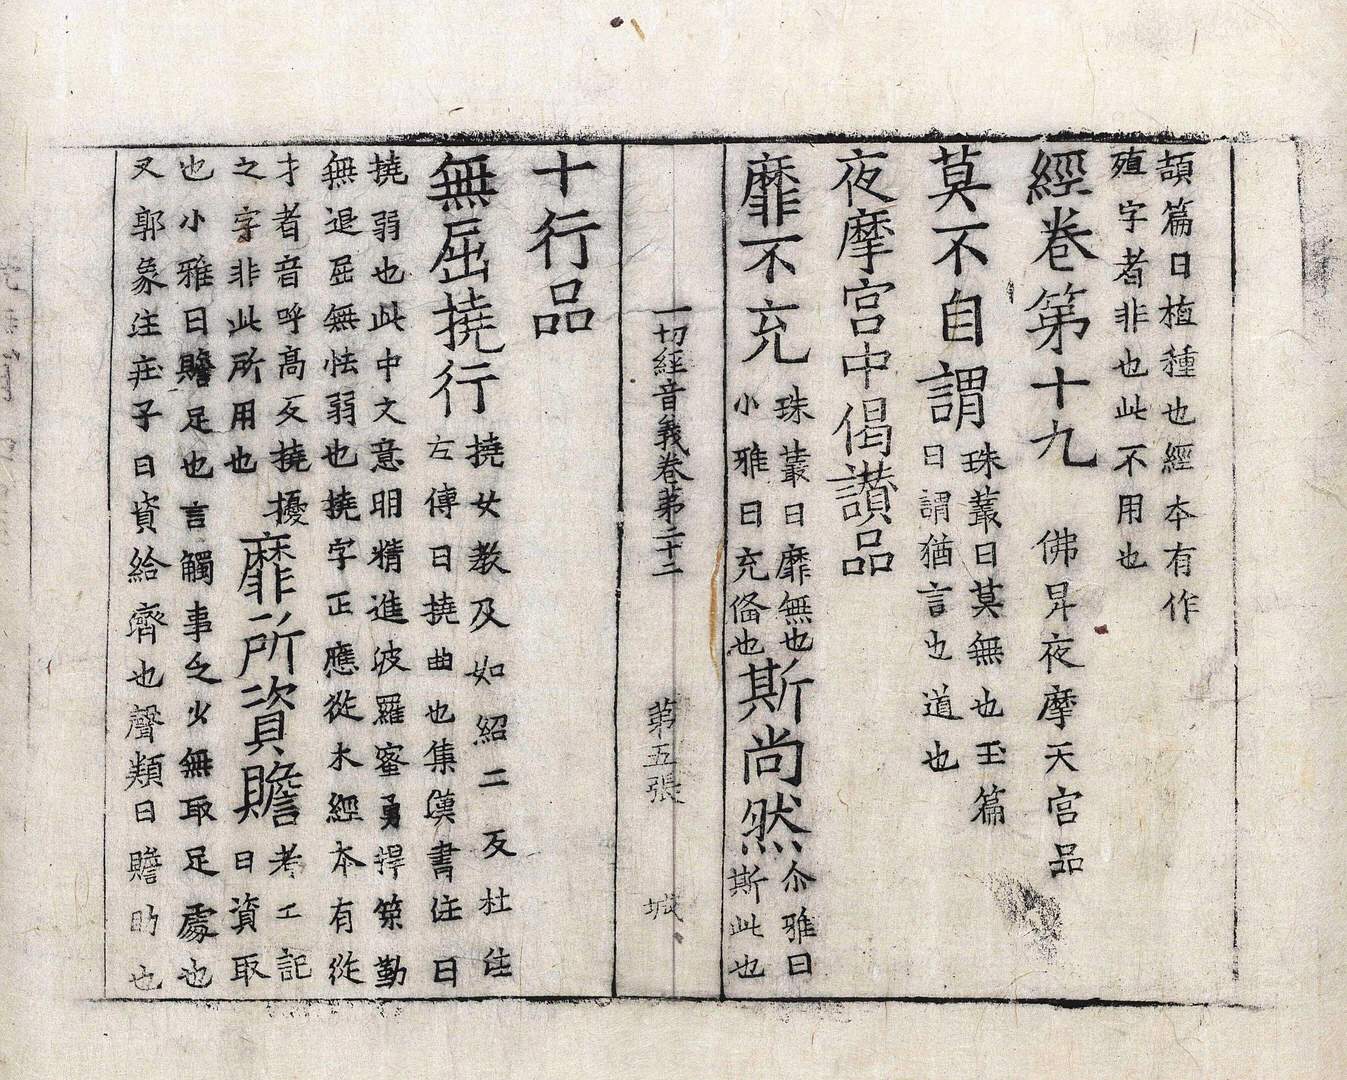 頡篇曰植種也經本有作
殖字者非也此不用也
經卷第十九 佛昇夜摩天宮品
莫不自謂 珠叢曰莫無也玉篇
曰謂猶言也道也
夜摩宮中偈讃品
靡不充 珠叢曰靡無也
小雅曰充俻也
斯尚然 尒雅曰
斯此也
一切經音義卷第二十二 第五張 城
十行品
無屈撓行 撓女教及如紹二反杜注
左傳曰撓曲也集漢書注曰
撓弱也此中文意明精進波羅蜜勇捍策勤
無退屈無怯弱也撓字正應從木經本有從
扌者音呼高反撓擾
之字非此所用也
靡所資贍 考工記
曰資取
也小雅曰贍足也言觸事乏少無取足處也
又郭象注莊子曰資給濟也聲類曰贍助也